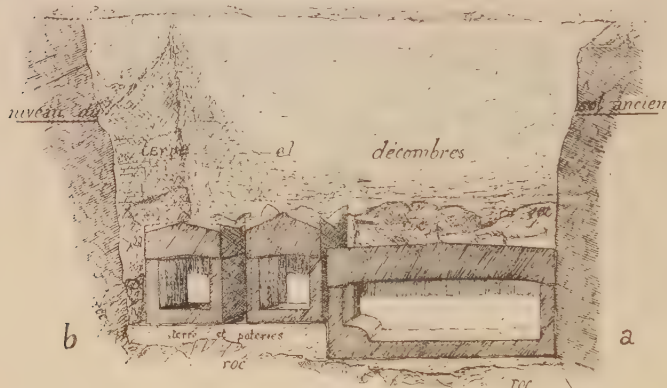 niveau du sol ancien
terre et décombres
roc
roc
b
terre et poteries
a
roc
roc